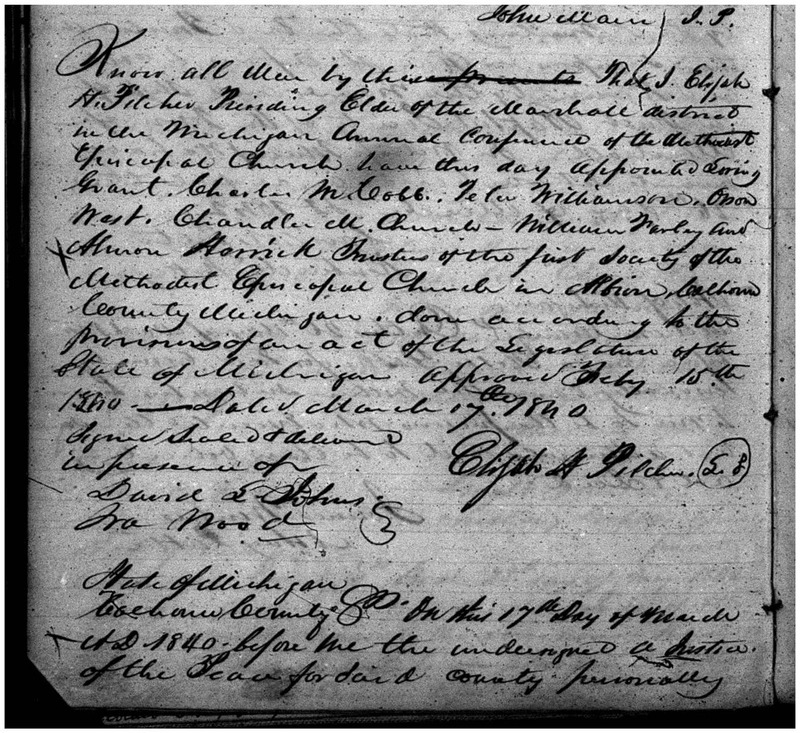 John Main J. P.
Know all Men by these presents That I. Elijah
H. Pilcher Presiding Elder of the Marshall district
in the Michigan Annual Conference of the Methodist
Episcopal Church have this day appointed Loring
Grant. Charles M Cobb. Peter Williamson. Orson
West. Chandler M. Church - William Farley and
Almon Herrick Trustees of the first Society of the
Methodist Episcopal Church in Albion, Calhoun
County Michigan. done according to the
provisions of an act of the Legislature of the
State of Michigan approved Feby 15.th
1840 — Dated March 17.th 1840
Signed Sealed & delivered
in presence of
Elijah H Pilcher. L S
David L Johns.
Ira Wood
State of Michigan
Calhoun County SS. On this 17th Day of March
A D 1840. before me the undersigned a Justice.
of the Peace for said county personally